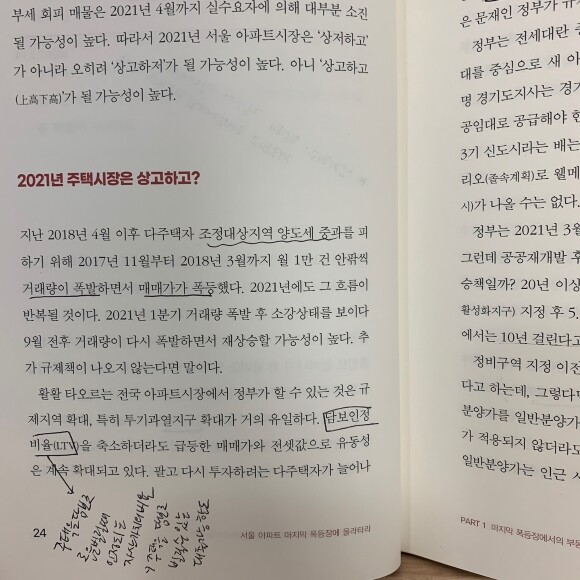 부세 회피 매물은 2021년 4월까지 실수요자에 의해 대부분 소진
될 가능성이 높다. 따라서 2021년 서울 아파트시장은 '상저하고'
가 아니라 오히려 '상고하저'가 될 가능성이 높다. 아니 '상고하고
(上高下高)'가 될 가능성이 높다.
2021년 주택시장은 상고하고?
지난 2018년 4월 이후 다주택자 조정대상지역 양도세 중과를 피
하기 위해 2017년 11월부터 2018년 3월까지 월 1만 건 안팎씩
거래량이 폭발하면서 매매가가 폭등했다. 2021년에도 그 흐름이
반복될 것이다. 2021년 1분기 거래량 폭발 후 소강상태를 보이다
9월 전후 거래량이 다시 폭발하면서 재상승할 가능성이 높다. 추
가 규제책이 나오지 않는다면 말이다.
활활 타오르는 전국 아파트시장에서 정부가 할 수 있는 것은 규
제지역 확대, 특히 투기과열지구 확대가 거의 유일하다. 담보인정
비율(LTV)을 축소하더라도 급등한 매매가와 전셋값으로 유동성
은 계속 확대되고 있다. 팔고 다시 투자하려는 다주택자가 늘어나
24
서울 아파트 마지막 폭등장에 올라타라
은 문재인 정부가 규
정부는 전세대란
대를 중심으로 새 아
명 경기도지사는 경기
공임대로 공급해야 한
3기 신도시라는 배는
리오(졸속계획)로 웰메
시)가 나올 수는 없다.
정부는 2021년 3월
그런데 공공재개발 후
승책일까? 20년 이상
활성화지구) 지정 후 5.
에서는 10년 걸린다고
정비구역 지정 이전
다고 하는데, 그렇다면
분양가를 일반분양가
가 적용되지 않더라도
일반분양가는 인근 시
PART 1 마지막 폭등장에서의 부동